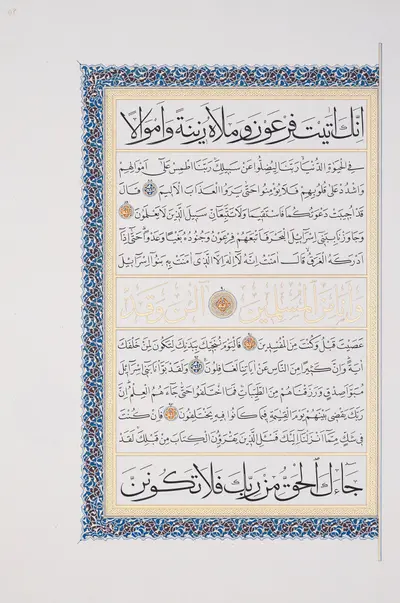 اِنَّكَ اٰتَيْتَ فِرْعَوْنَ وَمَلَاَهُ زِينَةً وَاَمْوَالًا
فِي الْحَيٰوةِ الدُّنْيَا رَبَّنَا لِيُضِلُّوا عَنْ سَبِيلِكَ رَبَّنَا اطْمِسْ عَلٰى اَمْوَالِهِمْ
وَاشْدُدْ عَلٰى قُلُوبِهِمْ فَلَا يُؤْمِنُوا حَتّٰى يَرَوُا الْعَذَابَ الْاَلِيمَ قَالَ
قَدْ اُجِيبَتْ دَعْوَتُكُمَا فَاسْتَقِيمَا وَلَا تَتَّبِعَانِّ سَبِيلَ الَّذِينَ لَا يَعْلَمُونَ
وَجَاوَزْنَا بِبَنِي اِسْرَائِيلَ الْبَحْرَ فَاَتْبَعَهُمْ فِرْعَوْنُ وَجُنُودُهُ بَغْيًا وَعَدْوًا حَتّٰى اِذَا
اَدْرَكَهُ الْغَرَقُ قَالَ اٰمَنْتُ اَنَّهُ لَا اِلٰهَ اِلَّا الَّذِي اٰمَنَتْ بِهِ بَنُوا اِسْرَائِيلَ
وَاَنَا مِنَ الْمُسْلِمِينَ آلْـٰٔنَ وَقَدْ
عَصَيْتَ قَبْلُ وَكُنْتَ مِنَ الْمُفْسِدِينَ فَالْيَوْمَ نُنَجِّيكَ بِبَدَنِكَ لِتَكُونَ لِمَنْ خَلْفَكَ
اٰيَةً وَاِنَّ كَثِيرًا مِنَ النَّاسِ عَنْ اٰيَاتِنَا لَغَافِلُونَ وَلَقَدْ بَوَّأْنَا بَنِي اِسْرَائِيلَ
مُبَوَّاَ صِدْقٍ وَرَزَقْنَاهُمْ مِنَ الطَّيِّبَاتِ فَمَا اخْتَلَفُوا حَتّٰى جَاءَهُمُ الْعِلْمُ اِنَّ
رَبَّكَ يَقْضِي بَيْنَهُمْ يَوْمَ الْقِيٰمَةِ فِيمَا كَانُوا فِيهِ يَخْتَلِفُونَ فَاِنْ كُنْتَ
فِي شَكٍّ مِمَّا اَنْزَلْنَا اِلَيْكَ فَسْـَٔلِ الَّذِينَ يَقْرَؤُنَ الْكِتَابَ مِنْ قَبْلِكَ لَقَدْ
جَاءَكَ الْحَقُّ مِنْ رَبِّكَ فَلَا تَكُونَنَّ